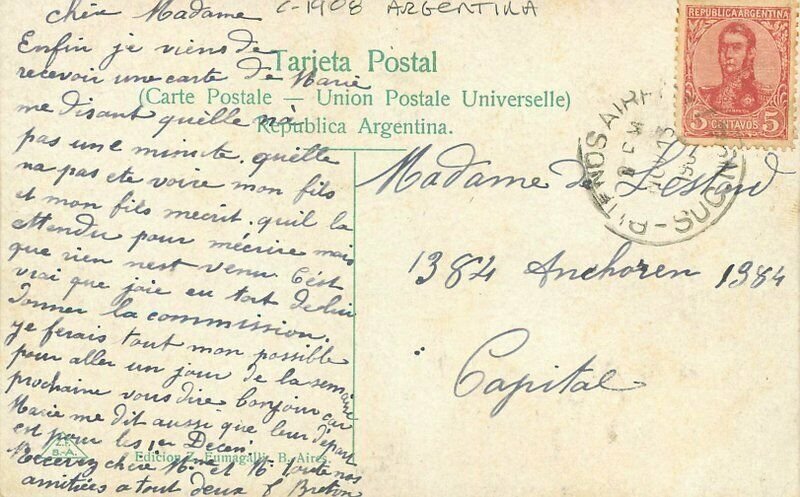 C-1908 ARGENTINA
chère Madame
Enfin je viens de
recevoir une carte de Marie
me disant quélle na
pas une minute. quélle
na pas ete voire mon fils
et mon fils mecrit. quil la
attendu pour mécrire mais
que rien nest venu. Cést
vrai que joie eu tort de lui
donner la commission.
je ferais tout mon possible
pour aller un jour de la semaine
prochaine vous dire bonjour car
Marie me dit aussi que leur départ
est pour les 1er Decem
Recevez chère Mme et M. toute nos
amitiées a tout deux F Breton
Tarjeta Postal
(Carte Postale – Union Postale Universelle)
República Argentina.
REPUBLICA ARGENTINA
5 CENTAVOS 5
BUENOS AIRES
SUC
Madame de
1384 Anchoren 1384
Capital
Z.F.
B-A.
Edicion Z. Fumagalli, B. Aires.